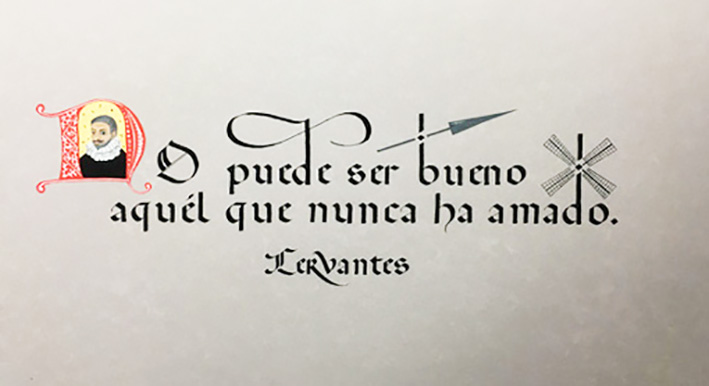 No puede ser bueno
aquél que nunca ha amado.
Cervantes